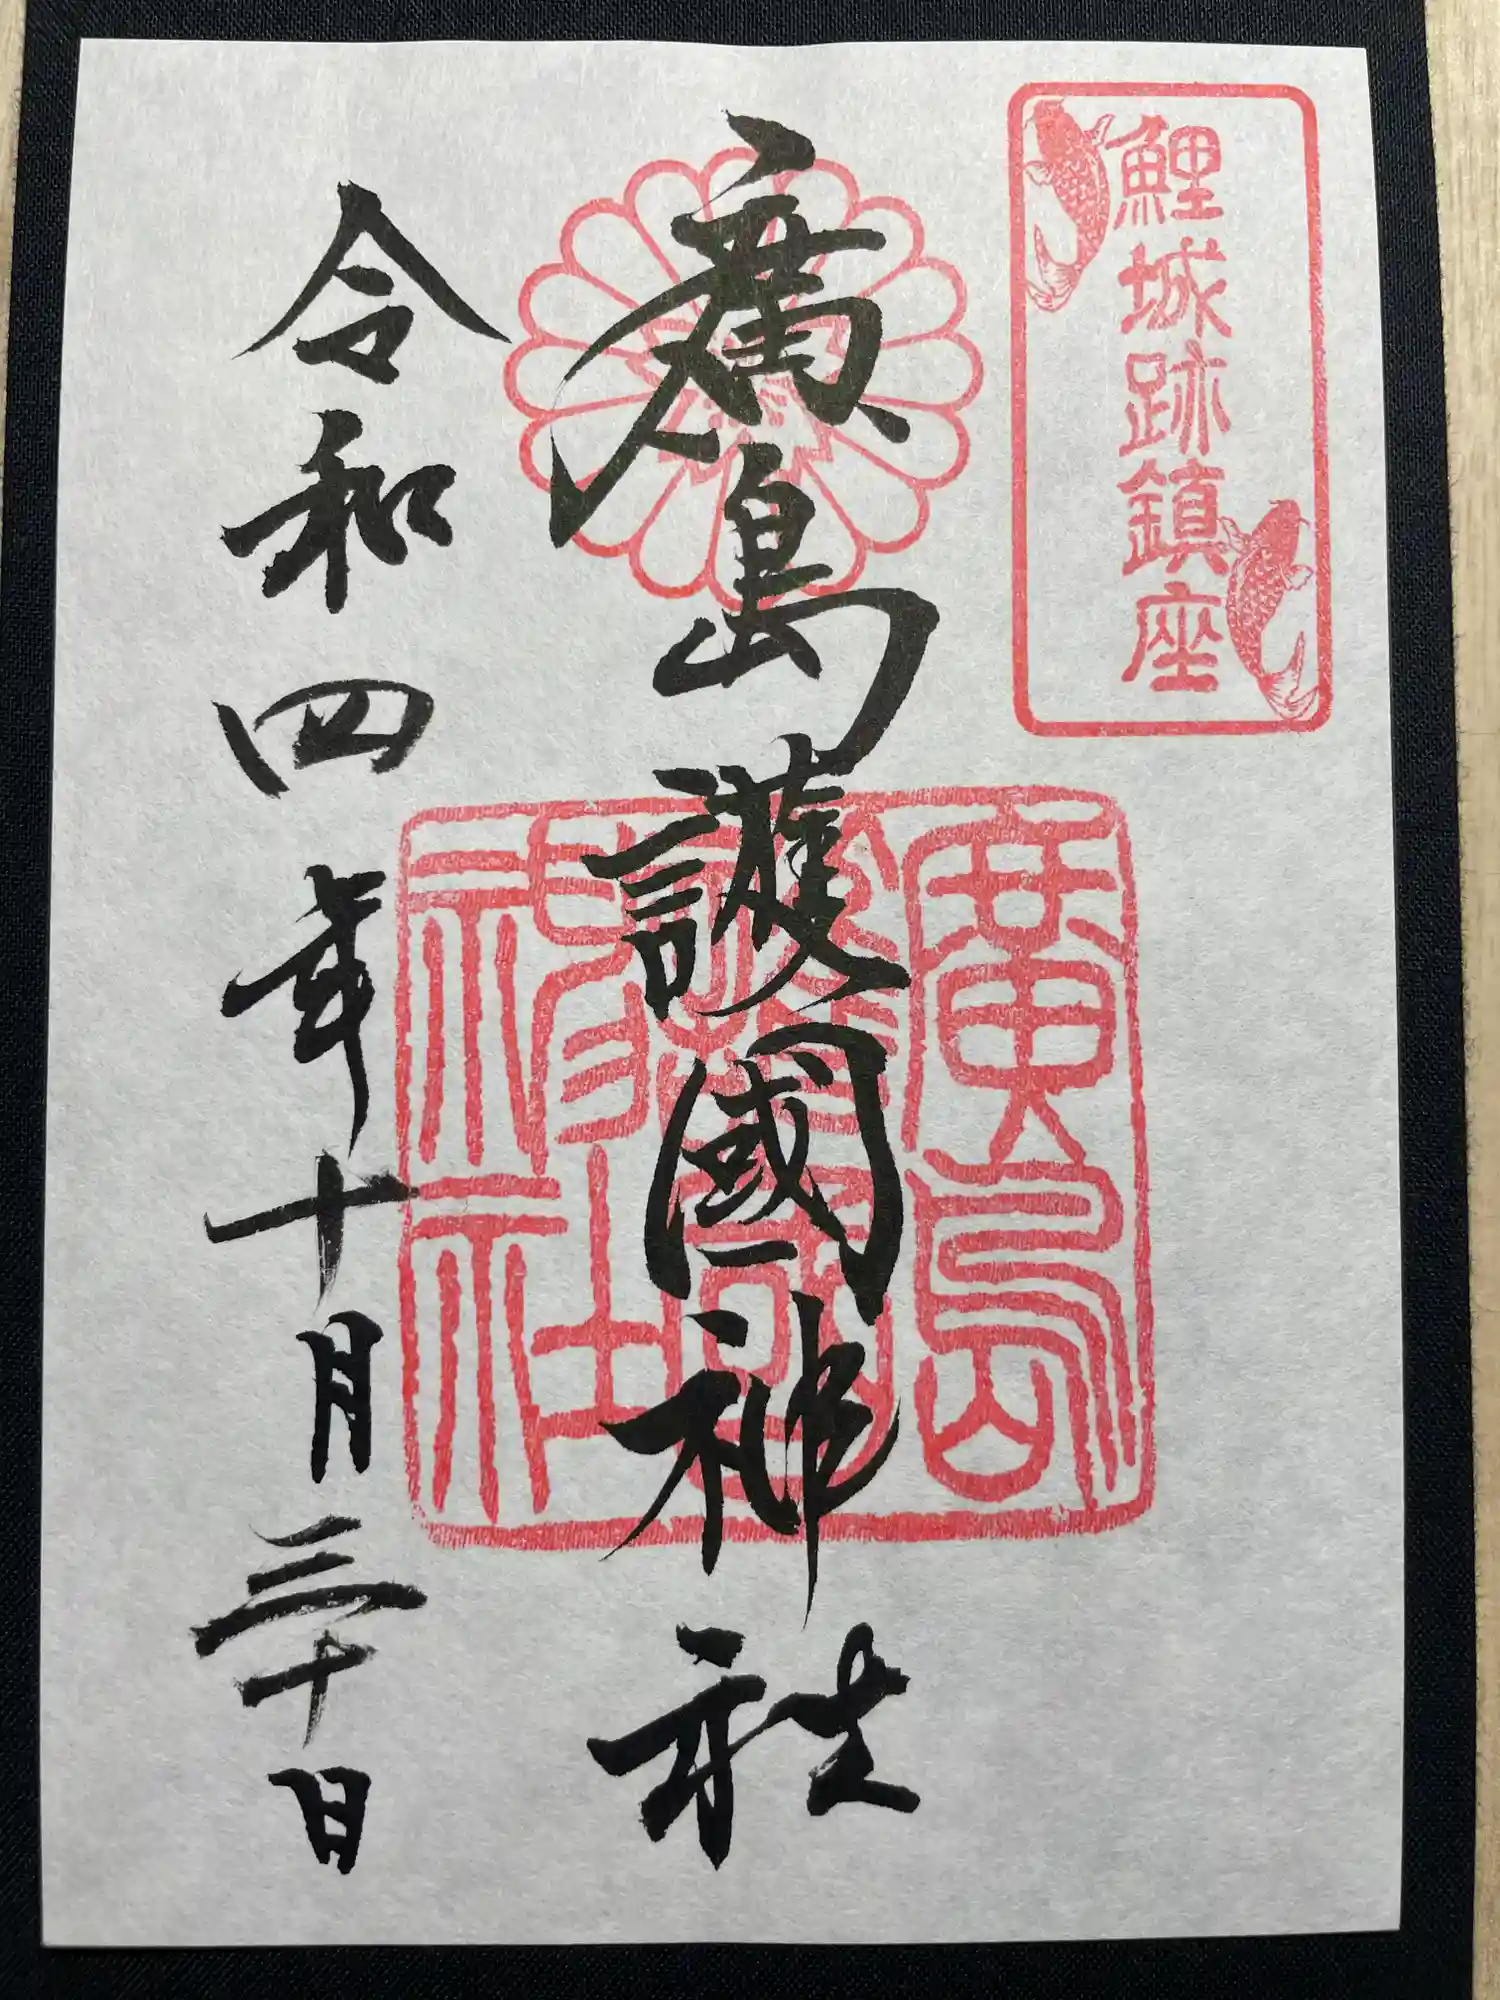 鯉城跡鎮座
廣島護國神社
廣島
護國
神社
令和四年十月三十日